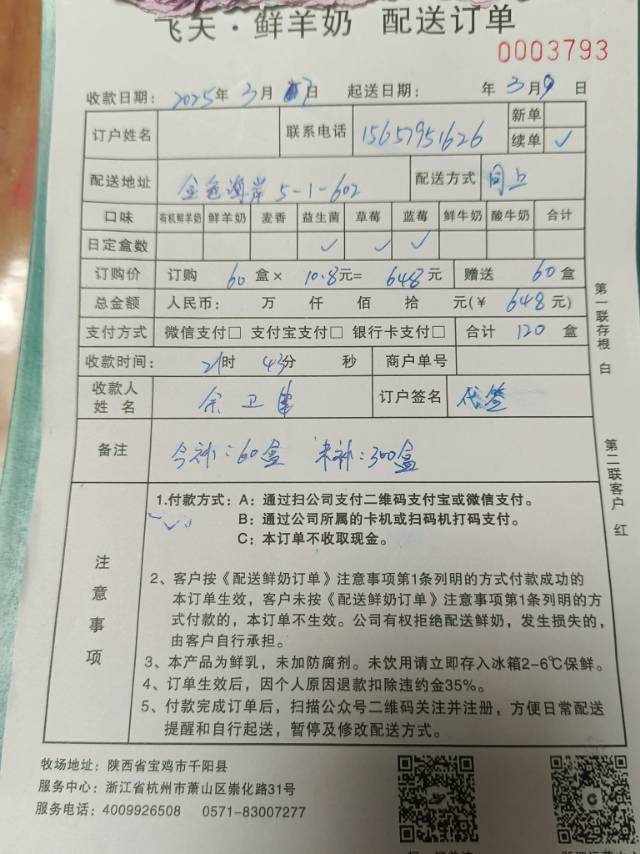 飞天·鲜羊奶 配送订单
0003793
收款日期： 2025年 3月 7日 起送日期： 年 3月 9日
订户姓名 联系电话 15657951626 新单
续单 ✓
配送地址 金色海岸 5-1-602 配送方式 同上
口味 有机鲜羊奶 鲜羊奶 麦香 益生菌 草莓 蓝莓 鲜牛奶 酸牛奶 合计
日定盒数 ✓ ✓ ✓
订购价 订购 60 盒× 10.8元= 648 元 赠送 60盒
总金额 人民币： 万 仟 佰 拾 元(¥ 648元)
支付方式 微信支付□ 支付宝支付□ 银行卡支付□ 合计 120 盒
收款时间： 21时 43分 秒 商户单号
收款人姓名 余卫 订户签名 代签
备注 今补：60盒 未补：300盒
注意事项
1.付款方式：A：通过扫公司支付二维码支付宝或微信支付。
B：通过公司所属的卡机或扫码机打码支付。
C：本订单不收取现金。
2、客户按《配送鲜奶订单》注意事项第1条列明的方式付款成功的
本订单生效，客户未按《配送鲜奶订单》注意事项第1条列明的方
式付款的，本订单不生效。公司有权拒绝配送鲜奶，发生损失的，
由客户自行承担。
3、本产品为鲜乳，未加防腐剂。未饮用请立即存入冰箱2-6℃保鲜。
4、订单生效后，因个人原因退款扣除违约金35%。
5、付款完成订单后，扫描公众号二维码关注并注册，方便日常配送
提醒和自行起送，暂停及修改配送方式。
第一联存根 白
第二联客户 红
牧场地址：陕西省宝鸡市千阳县
服务中心：浙江省杭州市萧山区崇化路31号
服务电话：4009926508 0571-83007277